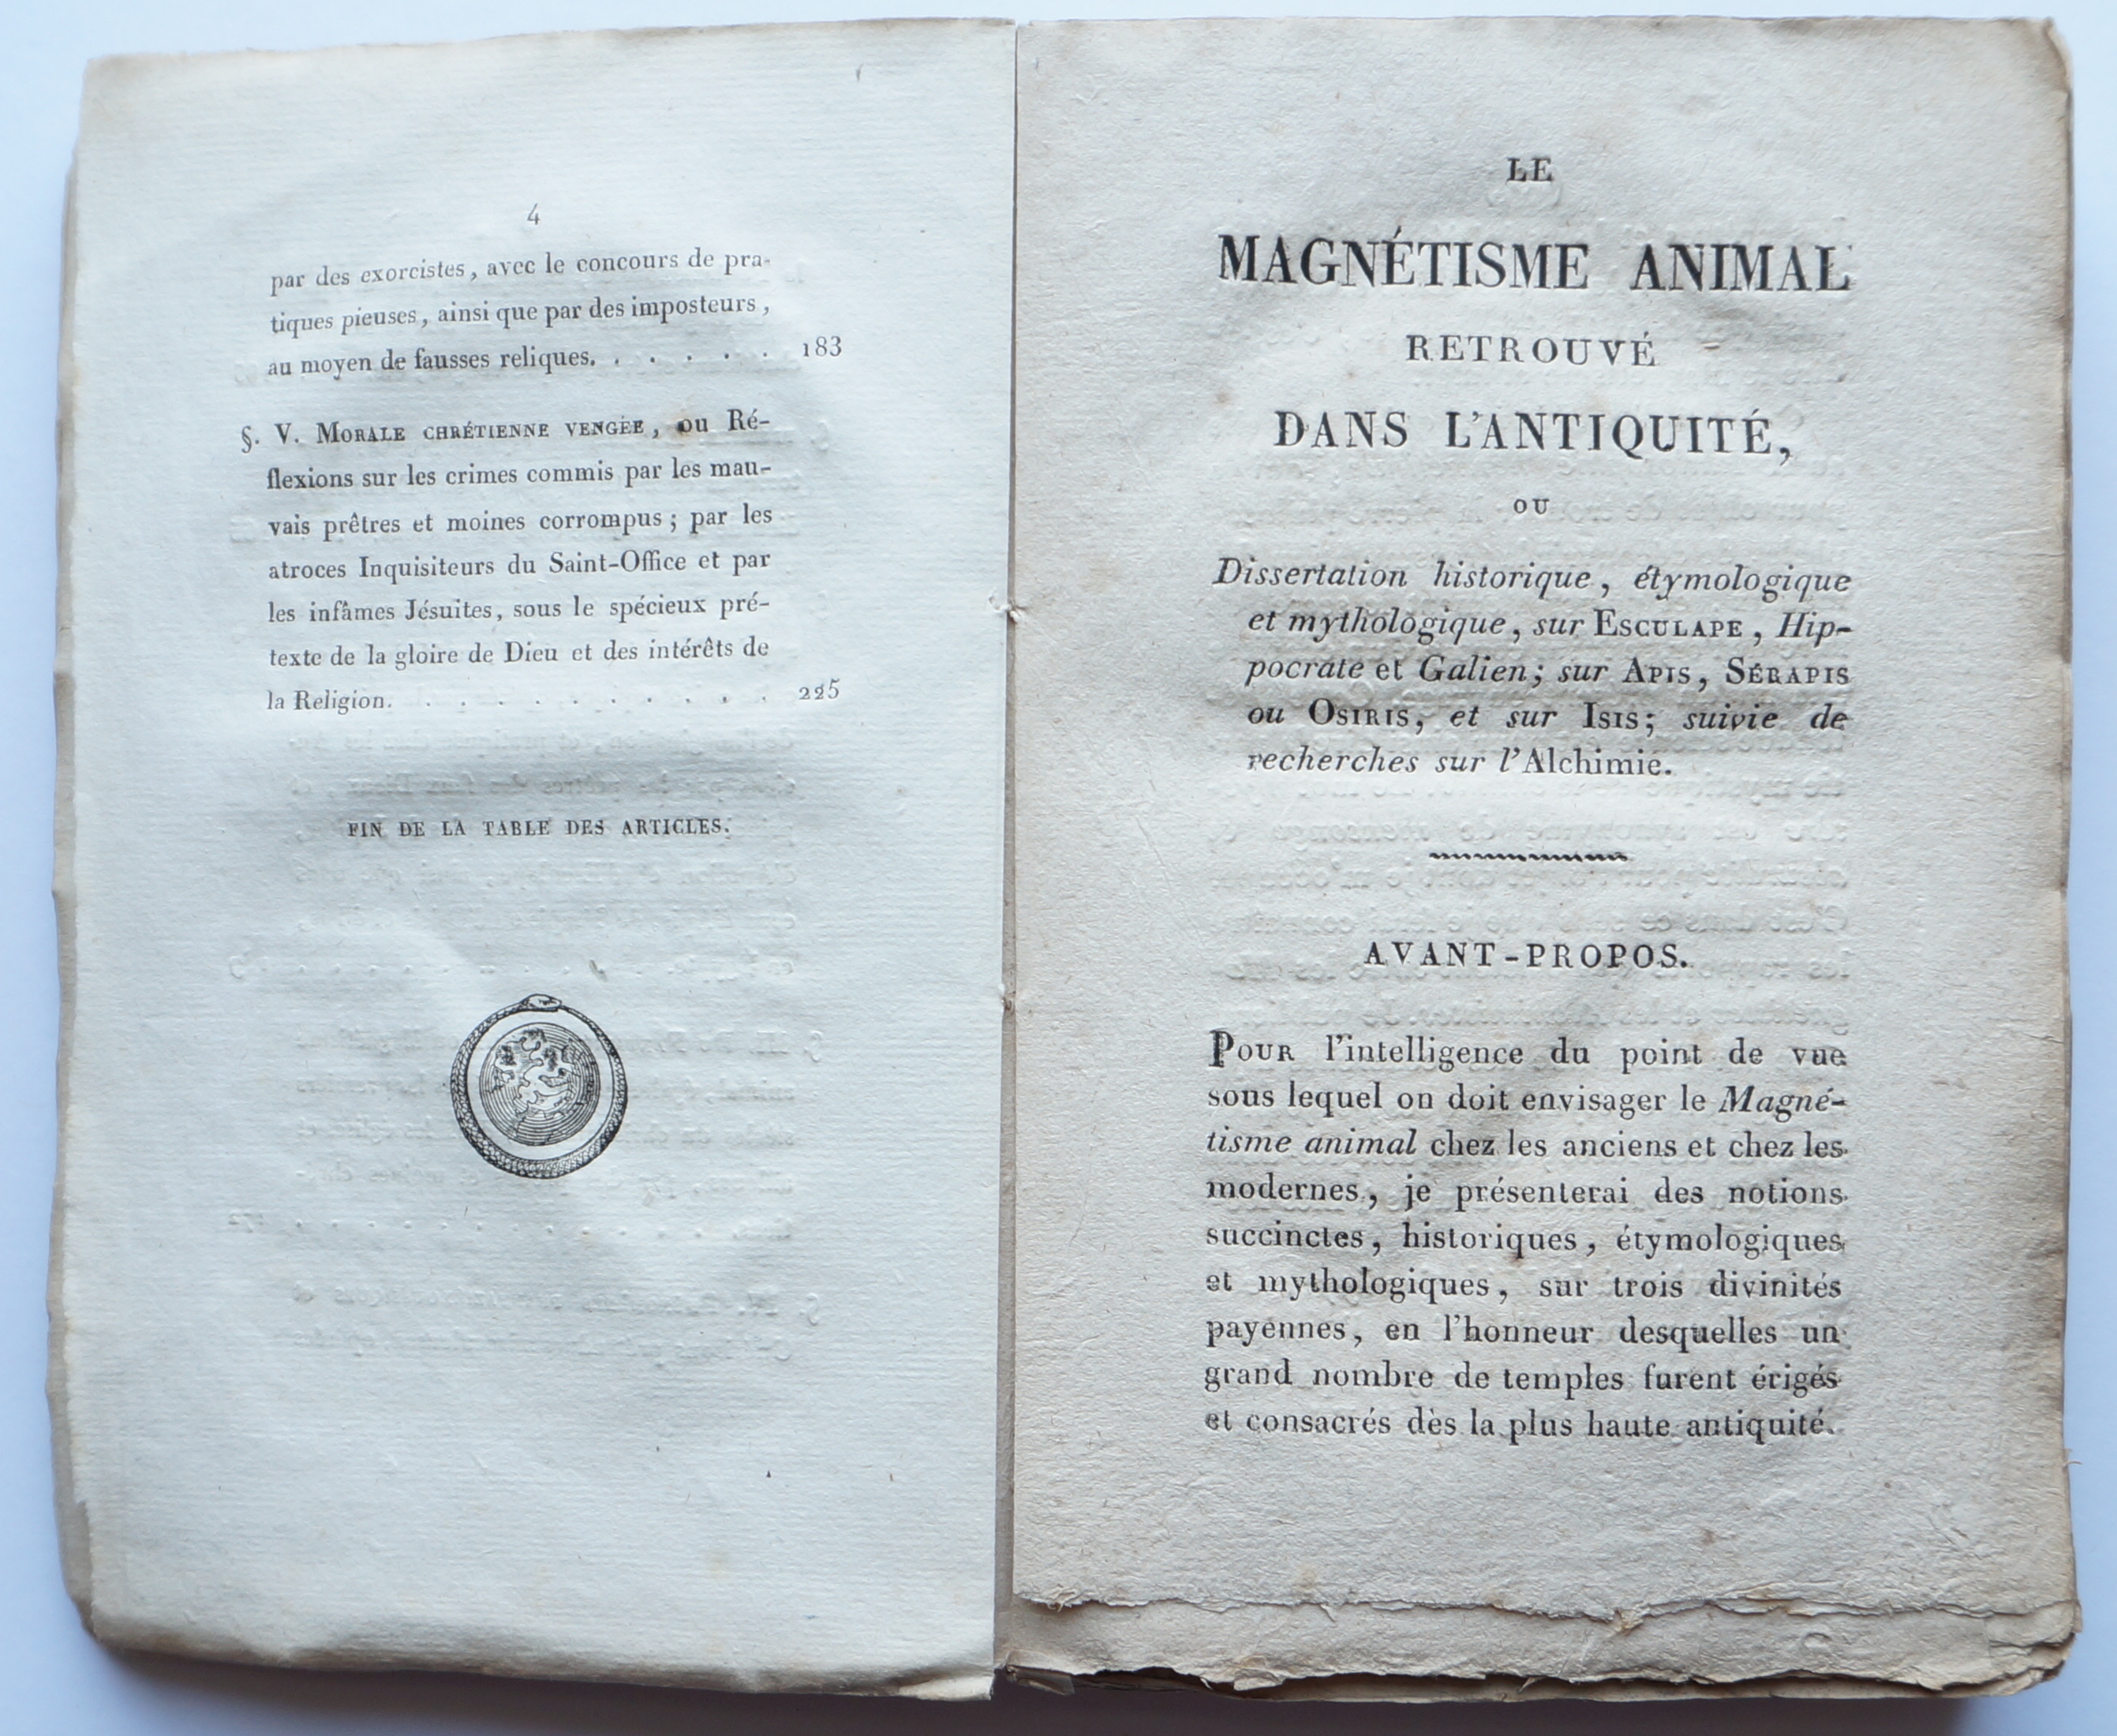 4
par des exorcistes, avec le concours de pra-
tiques pieuses, ainsi que par des imposteurs,
au moyen de fausses reliques. . . . . . 183
§. V. MORALE CHRÉTIENNE VENGÉE, ou Ré-
flexions sur les crimes commis par les mau-
vais prêtres et moines corrompus; par les
atroces Inquisiteurs du Saint-Office et par
les infâmes Jésuites, sous le spécieux pré-
texte de la gloire de Dieu et des intérêts de
la Religion. . . . . . . . . . . 225
FIN DE LA TABLE DES ARTICLES.
LE
MAGNÉTISME ANIMAL
RETROUVÉ
DANS L'ANTIQUITÉ,
OU
Dissertation historique, étymologique
et mythologique, sur ESCULAPE, Hip-
pocrate et Galien; sur APIS, SÉRAPIS
ou OSIRIS, et sur ISIS; suivie de
recherches sur l'Alchimie.
AVANT-PROPOS.
POUR l'intelligence du point de vue
sous lequel on doit envisager le Magné-
tisme animal chez les anciens et chez les
modernes, je présenterai des notions
succinctes, historiques, étymologiques
et mythologiques, sur trois divinités
payennes, en l'honneur desquelles un
grand nombre de temples furent érigés
et consacrés dès la plus haute antiquité.